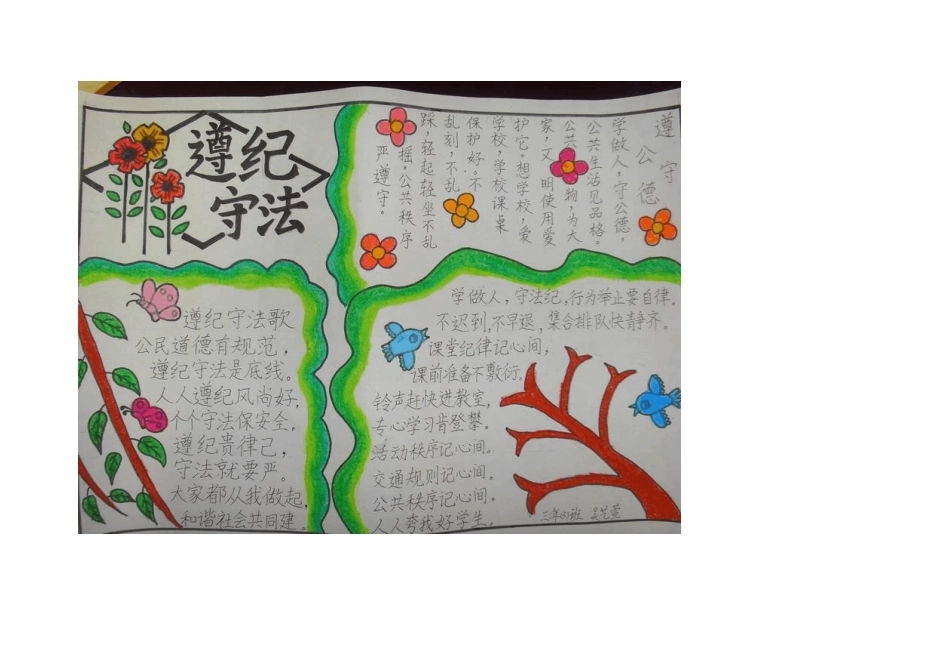 遵纪
守法
遵守
公德
学做人，守公德，
公共生活见品格。
公共 物，为大
家，文 明使用爱
护它。想学校，爱
学校，学校课桌
保护好。不
乱刻，不乱
踩，轻起轻坐不乱
摇。公共秩序
严遵守。
遵纪守法歌
公民道德有规范，
遵纪守法是底线。
人人遵纪风尚好，
个个守法保安全。
遵纪贵律己，
守法就要严。
大家都从我做起，
和谐社会共同建。
学做人，守法纪，行为举止要自律。
不迟到，不早退，集合排队快静齐。
课堂纪律记心间，
课前准备不敷衍，
铃声赶快进教室，
专心学习肯登攀。
活动秩序记心间。
交通规则记心间。
公共秩序记心间。
人人夸我好学生。
三年 班